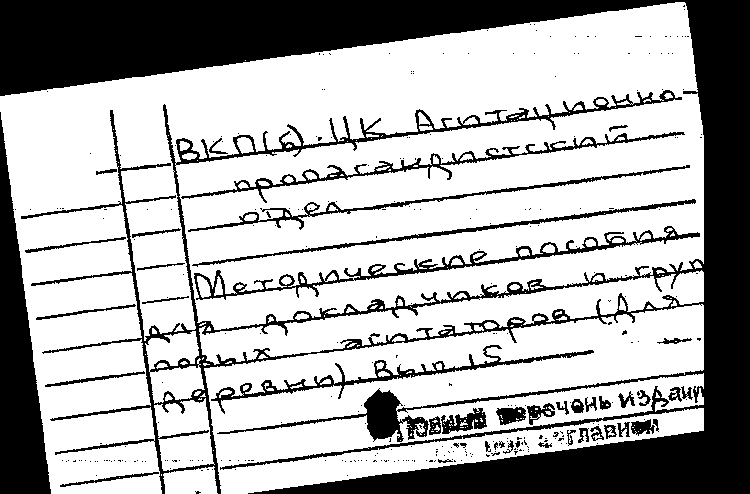 ВКП(б). ЦК. Агитационно-
пропагандистский
отдел.
Методические пособия
для докладчиков и груп
повых агитаторов. (Для
деревни). Вып. 15
Полный перечень издани
под заглавием